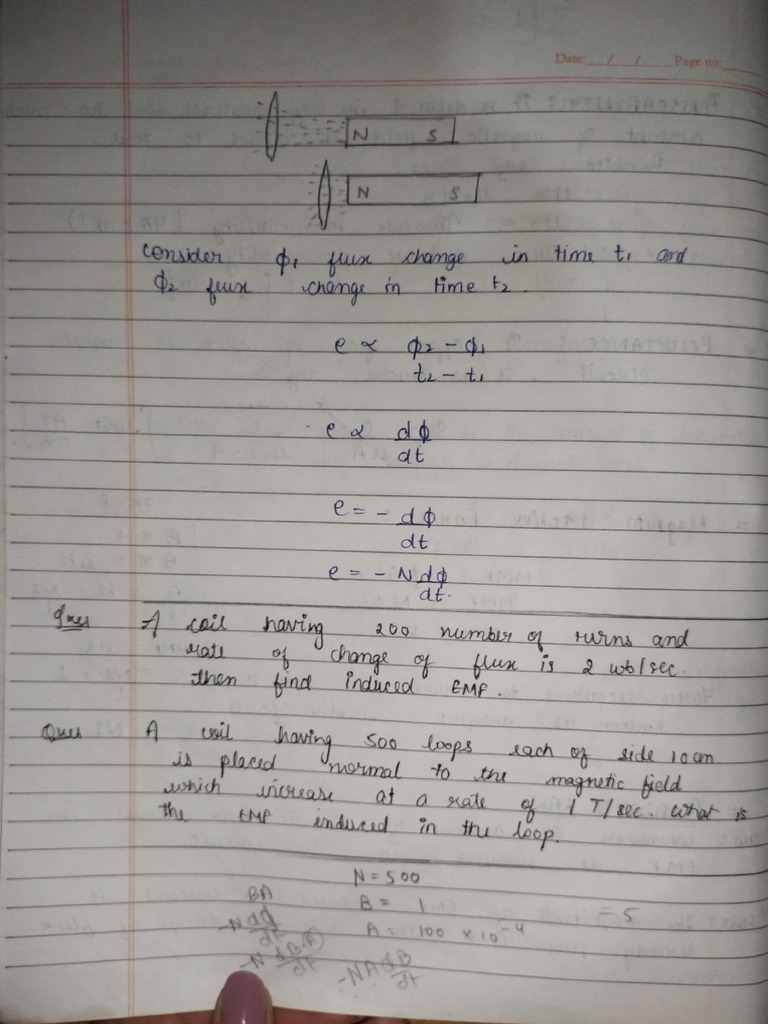 Date: / / Page no:
N S
N S
consider ϕ1 flux change in time t1 and
ϕ2 flux change in time t2.
e ∝ ϕ2 - ϕ1
t2 - t1
e ∝ dϕ
dt
e = - dϕ
dt
e = - N dϕ
dt.
Ques A coil having 200 number of turns and
rate of change of flux is 2 wb/sec.
then find induced EMF.
Ques A coil having 500 loops each of side 10cm
is placed normal to the magnetic field
which increase at a rate of 1 T/sec. what is
the EMF induced in the loop.
N = 500
BA
B = 1
A = 100 × 10-4
= 5
-NA dB
dt